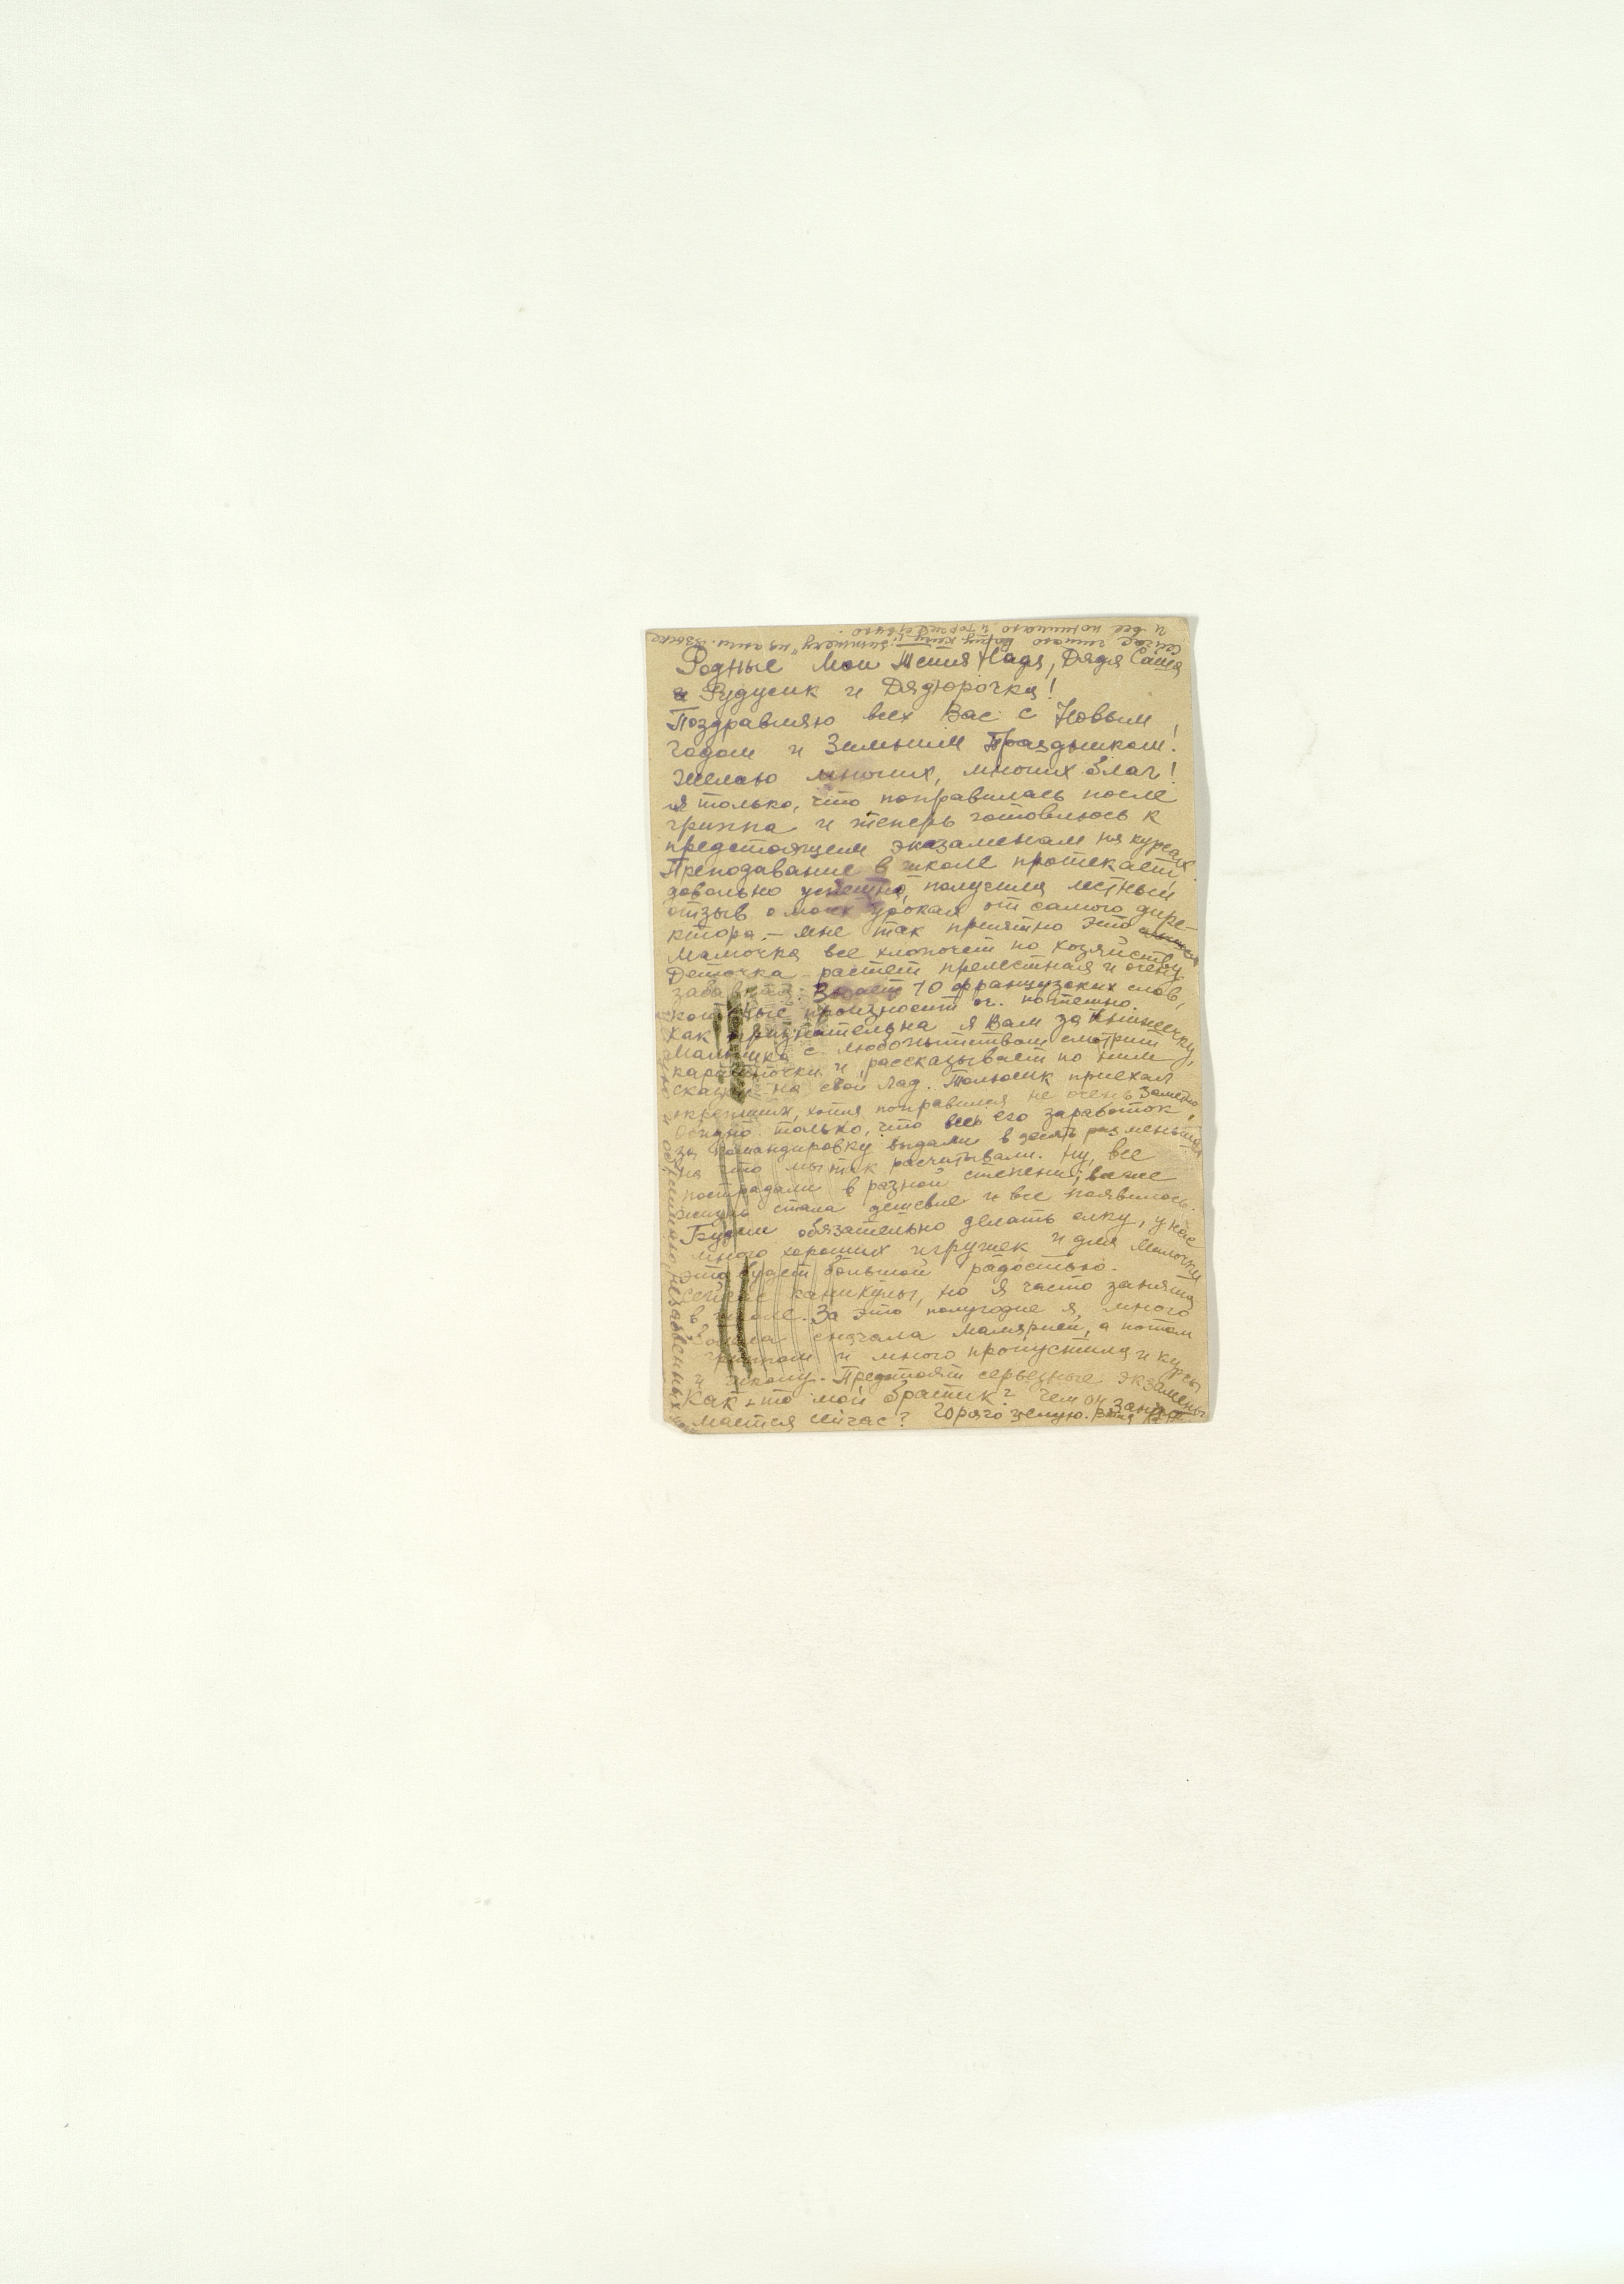 Родные Мои Тетя Надя, Дядя Саша
и Рудусик и Дядюрочка!
Поздравляю всех Вас с Новым
годом и Зимним Праздником!
Желаю многих, многих благ!
Я только, что поправилась после
гриппа и теперь готовлюсь к
предстоящим экзаменам на курсах.
Преподавание в школе протекает
довольно успешно, получила лестный
отзыв о моих уроках от самого дире-
ктора. – Мне так приятно это
Мамочка все хлопочет по хозяйству
Деточка растет прелестная и очень
забавная. Знает 10 французских слов,
которые произносит оч. потешно.
Как признательна я Вам за книжечку,
Малышка с любопытством смотрит
картиночки и рассказывает по ним
сказки на свой лад. Толюсик приехал
окрепших, хотя поправился не очень заметно,
обидно только, что весь его заработок
за командировку выдали в десять раз меньше
на что мы так расчитывали. Ну, все
пострадали в разной степени,
жизнь стала дешевле и все появилось.
Будем обязательно делать елку, у нас
много хороших игрушек и для Малочки
это будет большой радостью.
Сейчас каникулы, но я часто занята
в школе. За это полугодие я много
болела сначала малярией, а потом
гриппом и много пропустила и курсы
и школу. Предстоят серьезные экзамены
Как-то мой братик? Чем он зани-
мается сейчас? Горячо целую.
и обнимаю, незабвенных
Сейчас читаю на англ. языке
и все понимаю и торжествую.